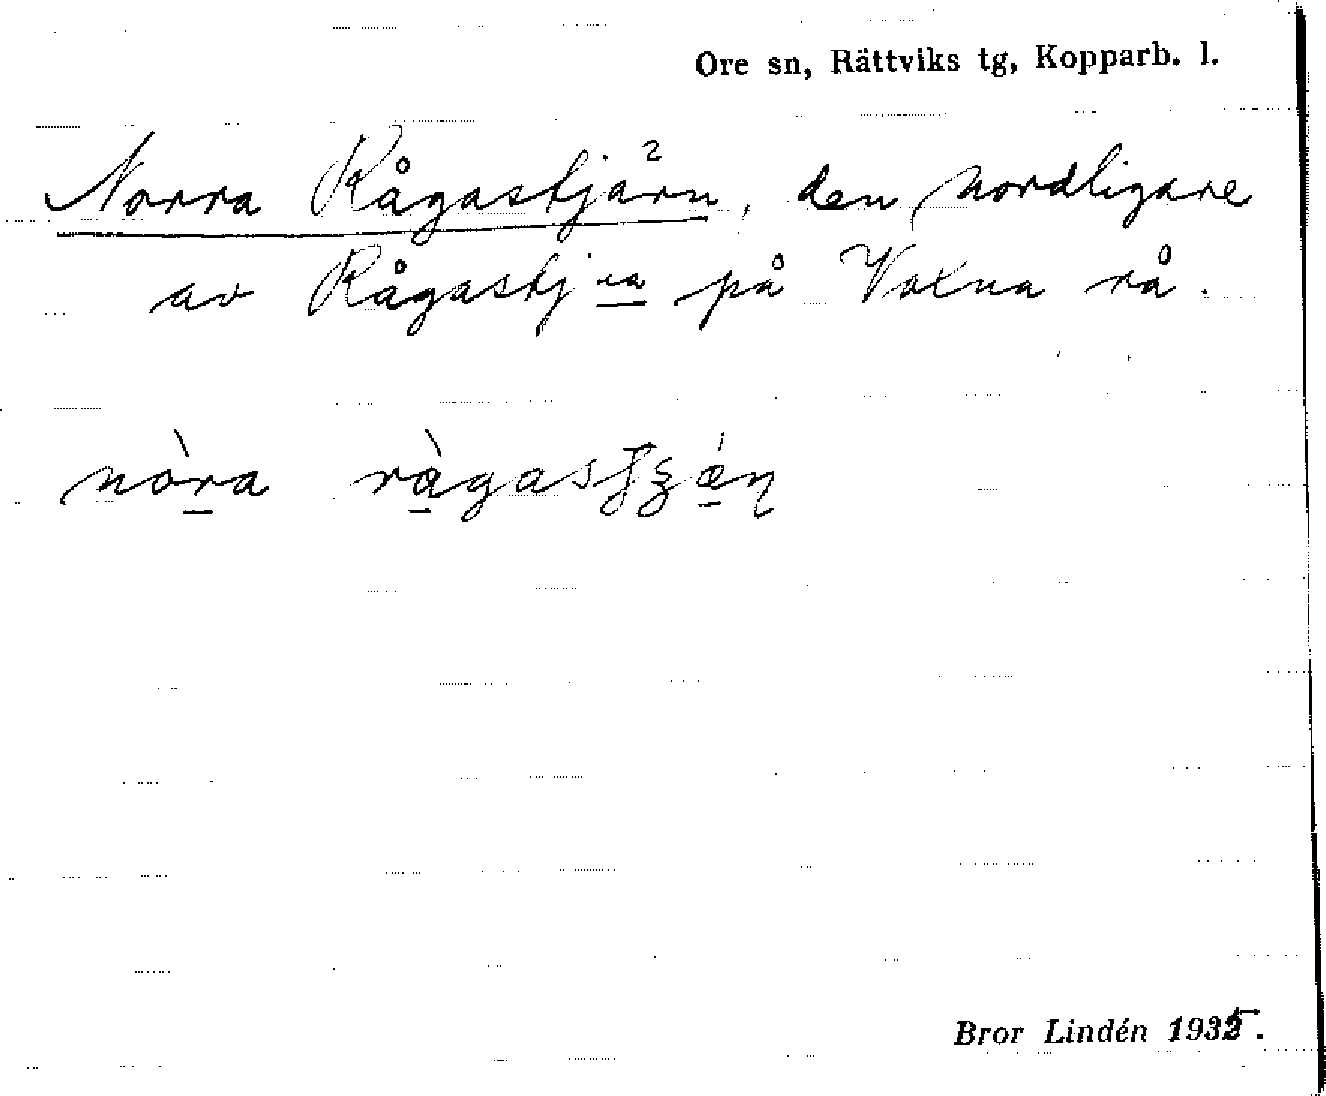 Ore sn, Rättviks tg, Kopparb. l.
Norra Rågastjärn², den nordligare
av Rågastj na på Voxna rå.
nòra ràgas
Bror Lindén 1935.